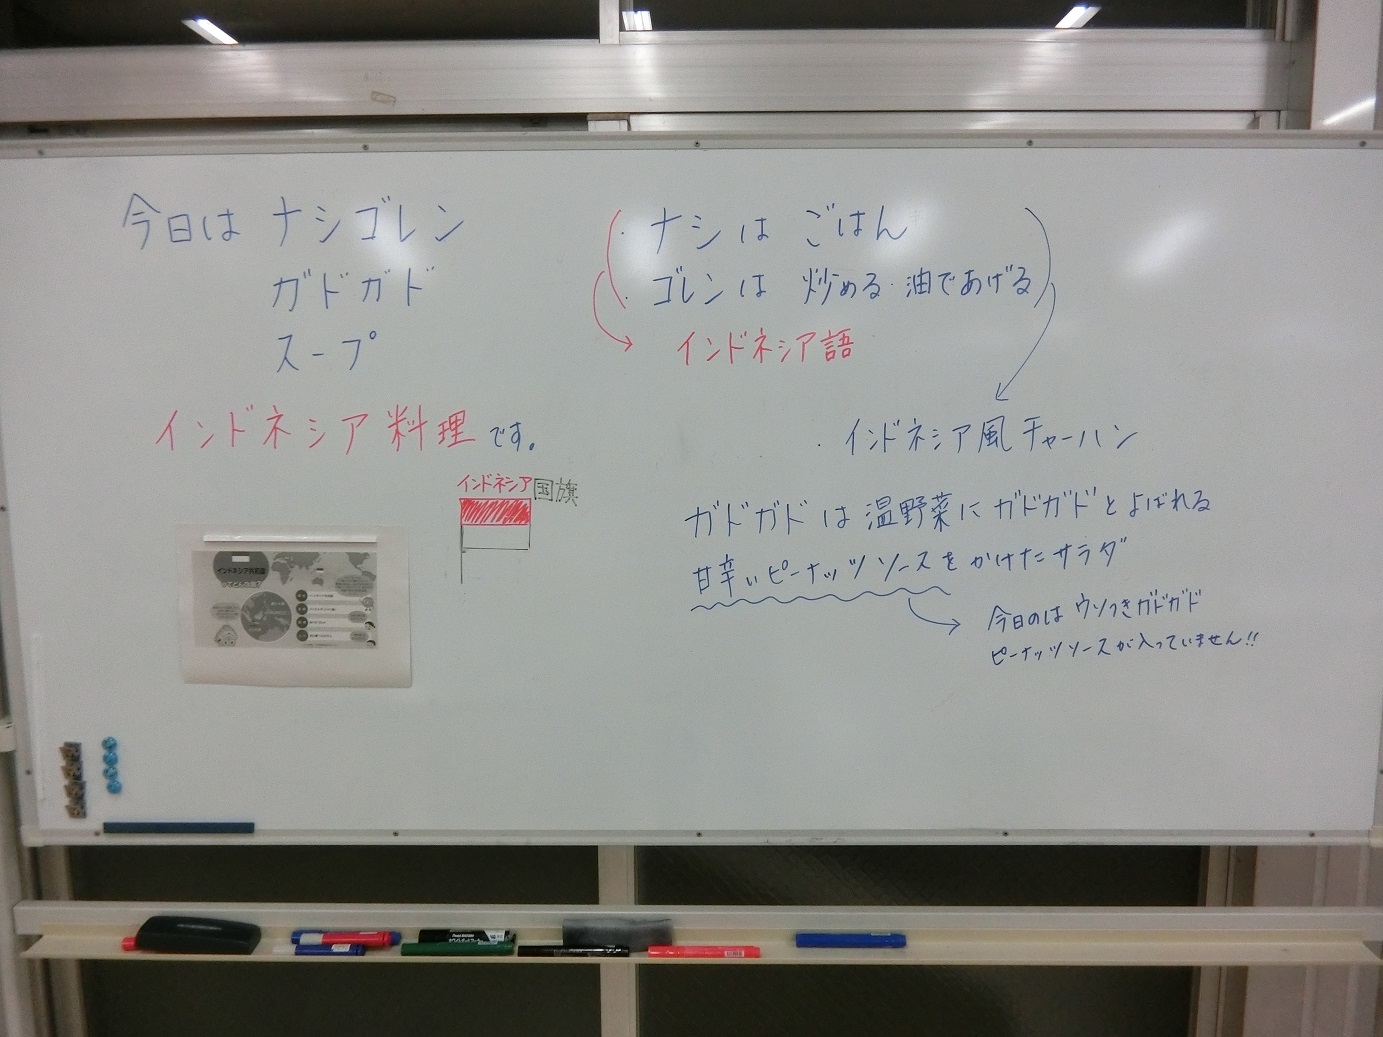 今日は ナシゴレン
ガドガド
スープ
インドネシア料理です。
インドネシア国旗
インドネシア共和国
・ナシは ごはん
・ゴレンは 炒める・油であげる
インドネシア語
・インドネシア風チャーハン
ガドガドは温野菜にガドガドとよばれる
甘辛いピーナッツソースをかけたサラダ
今日のはウソつきガドガド
ピーナッツソースが入っていません!!